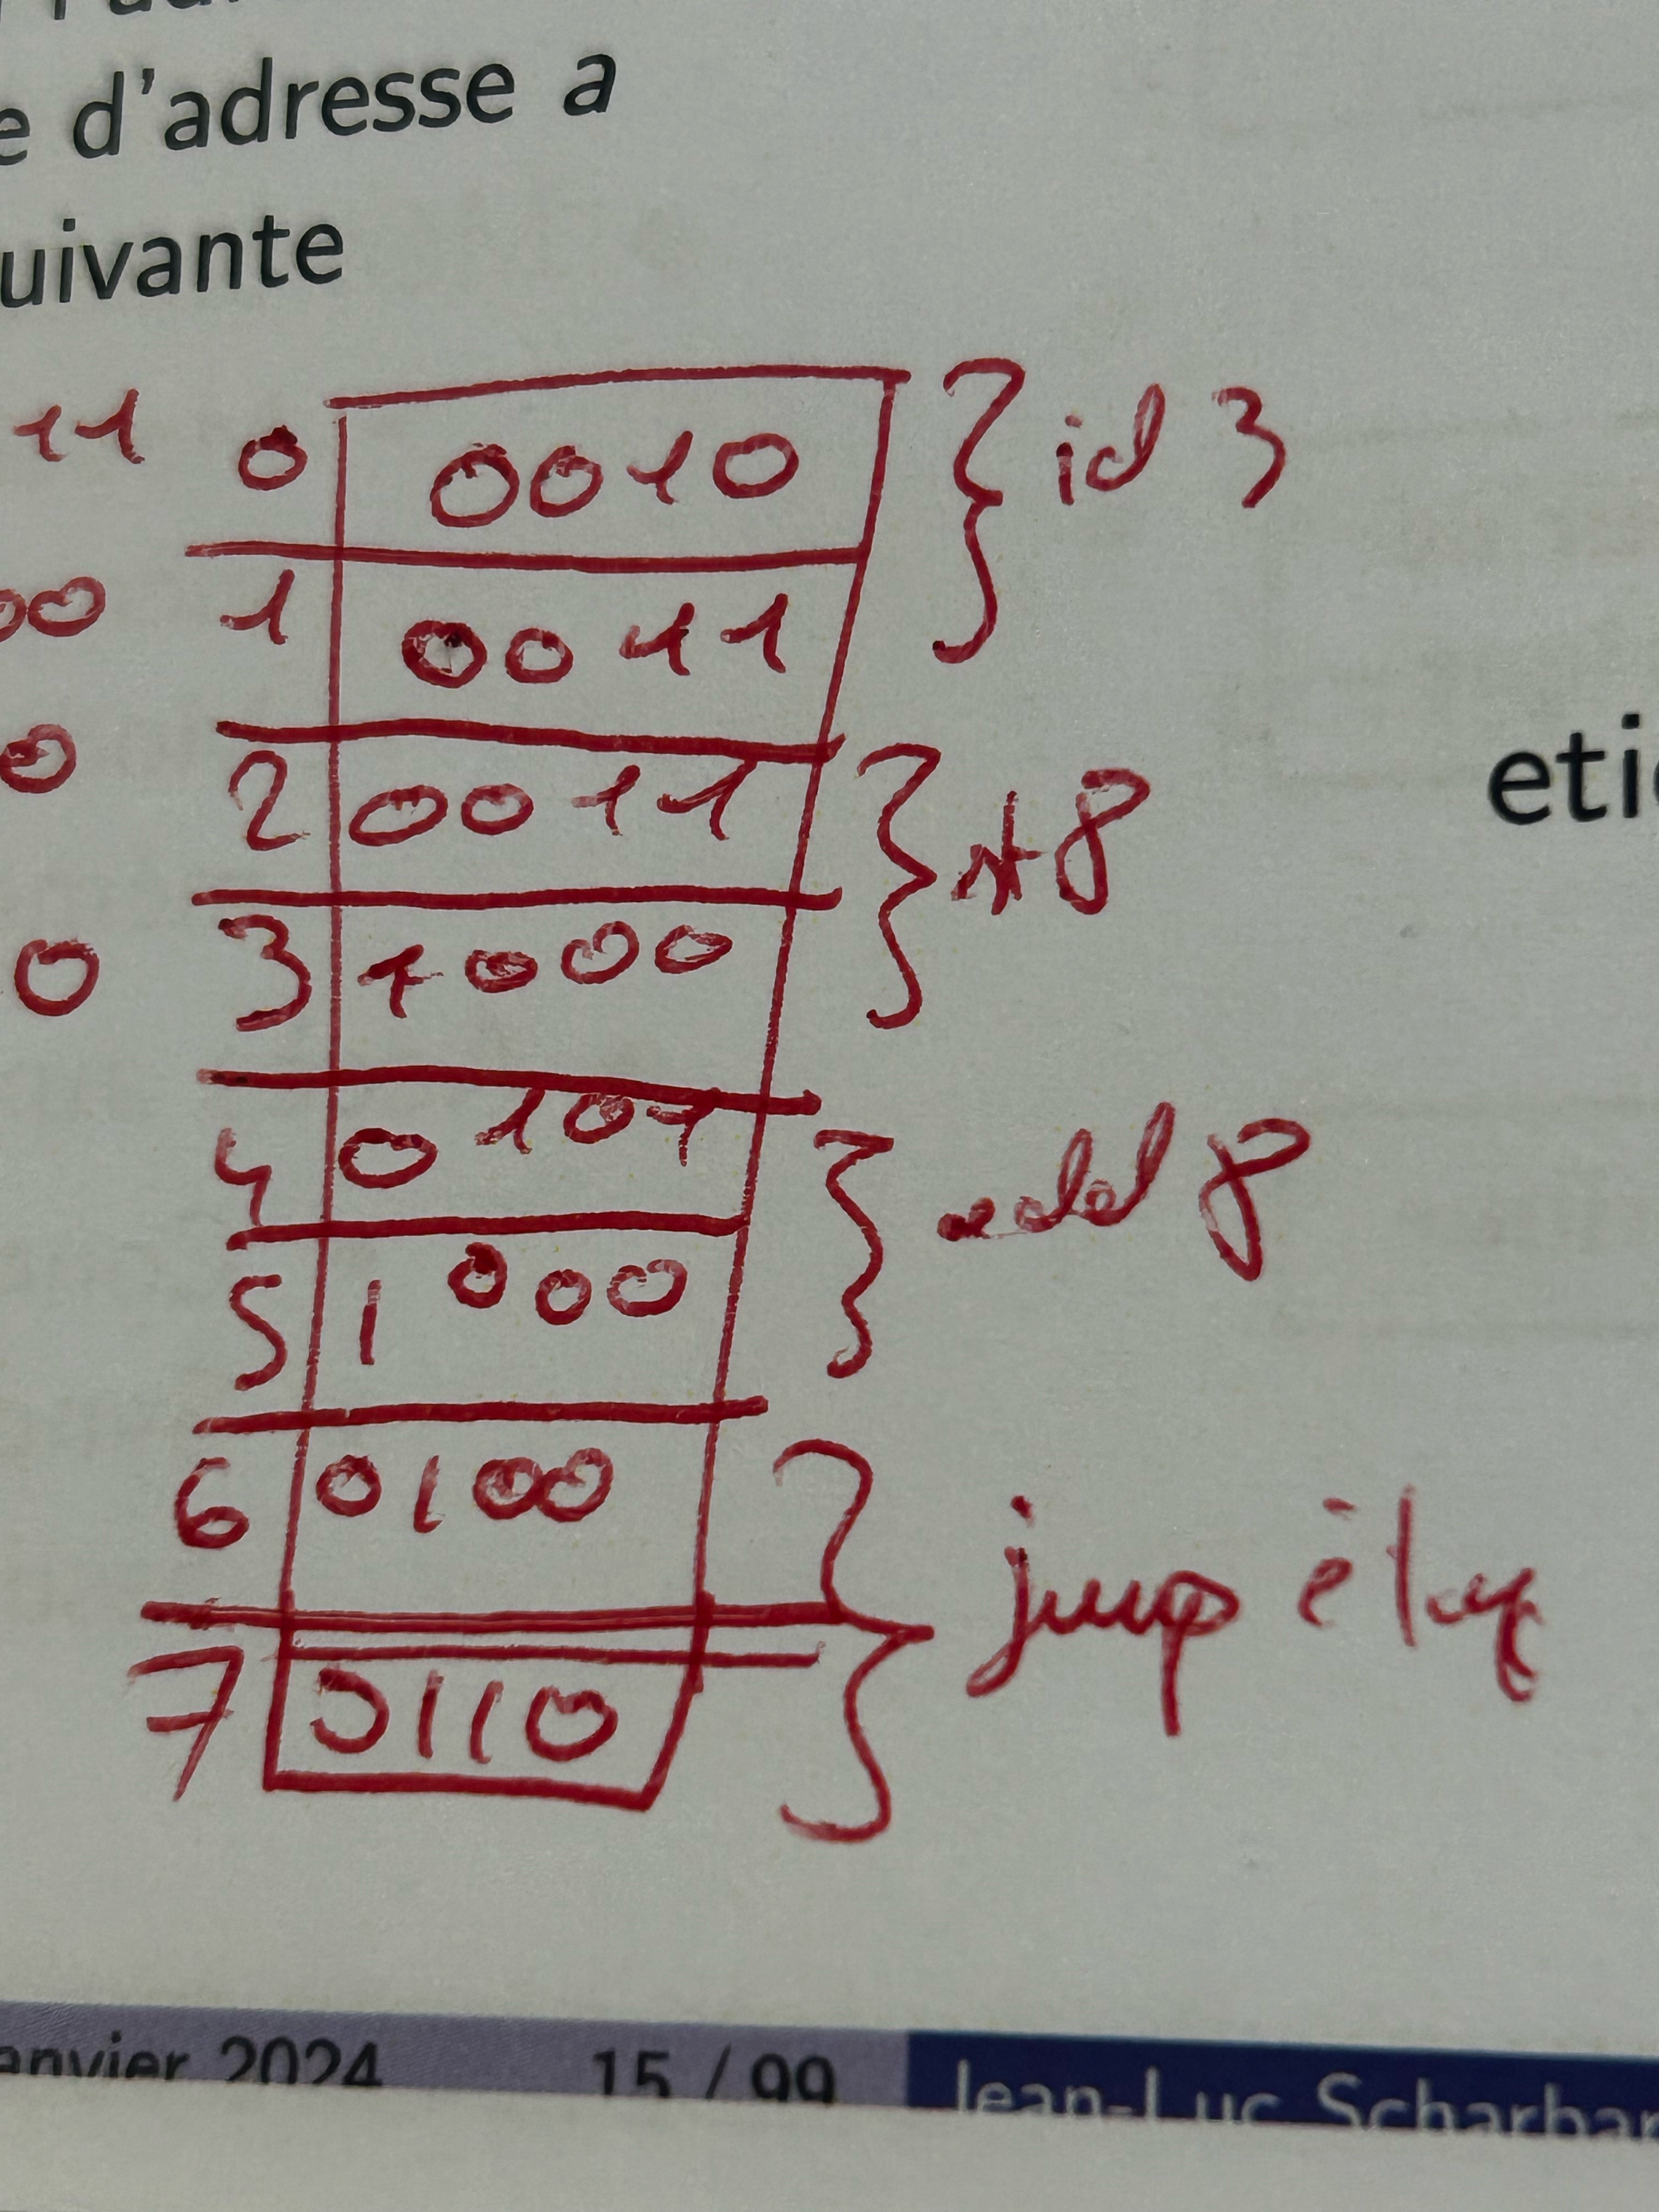 d'adresse a
uivante
11 0 0010 id 3
00 1 0011
0 2 0011 st 8
etic
0 3 1000
4 0101 add 8
5 1000
6 0100
jump
7 0110
anvier 2024 15 / 99 Jean-Luc Scharbar